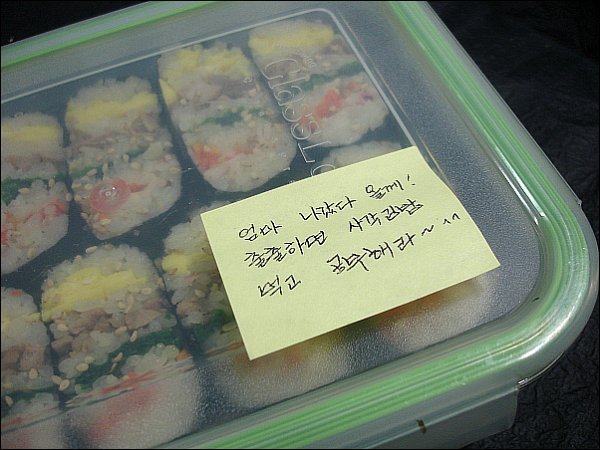 Glass
엄마 나갔다 올께!
출출하면 사각김밥
먹고 공부해라~ ^^